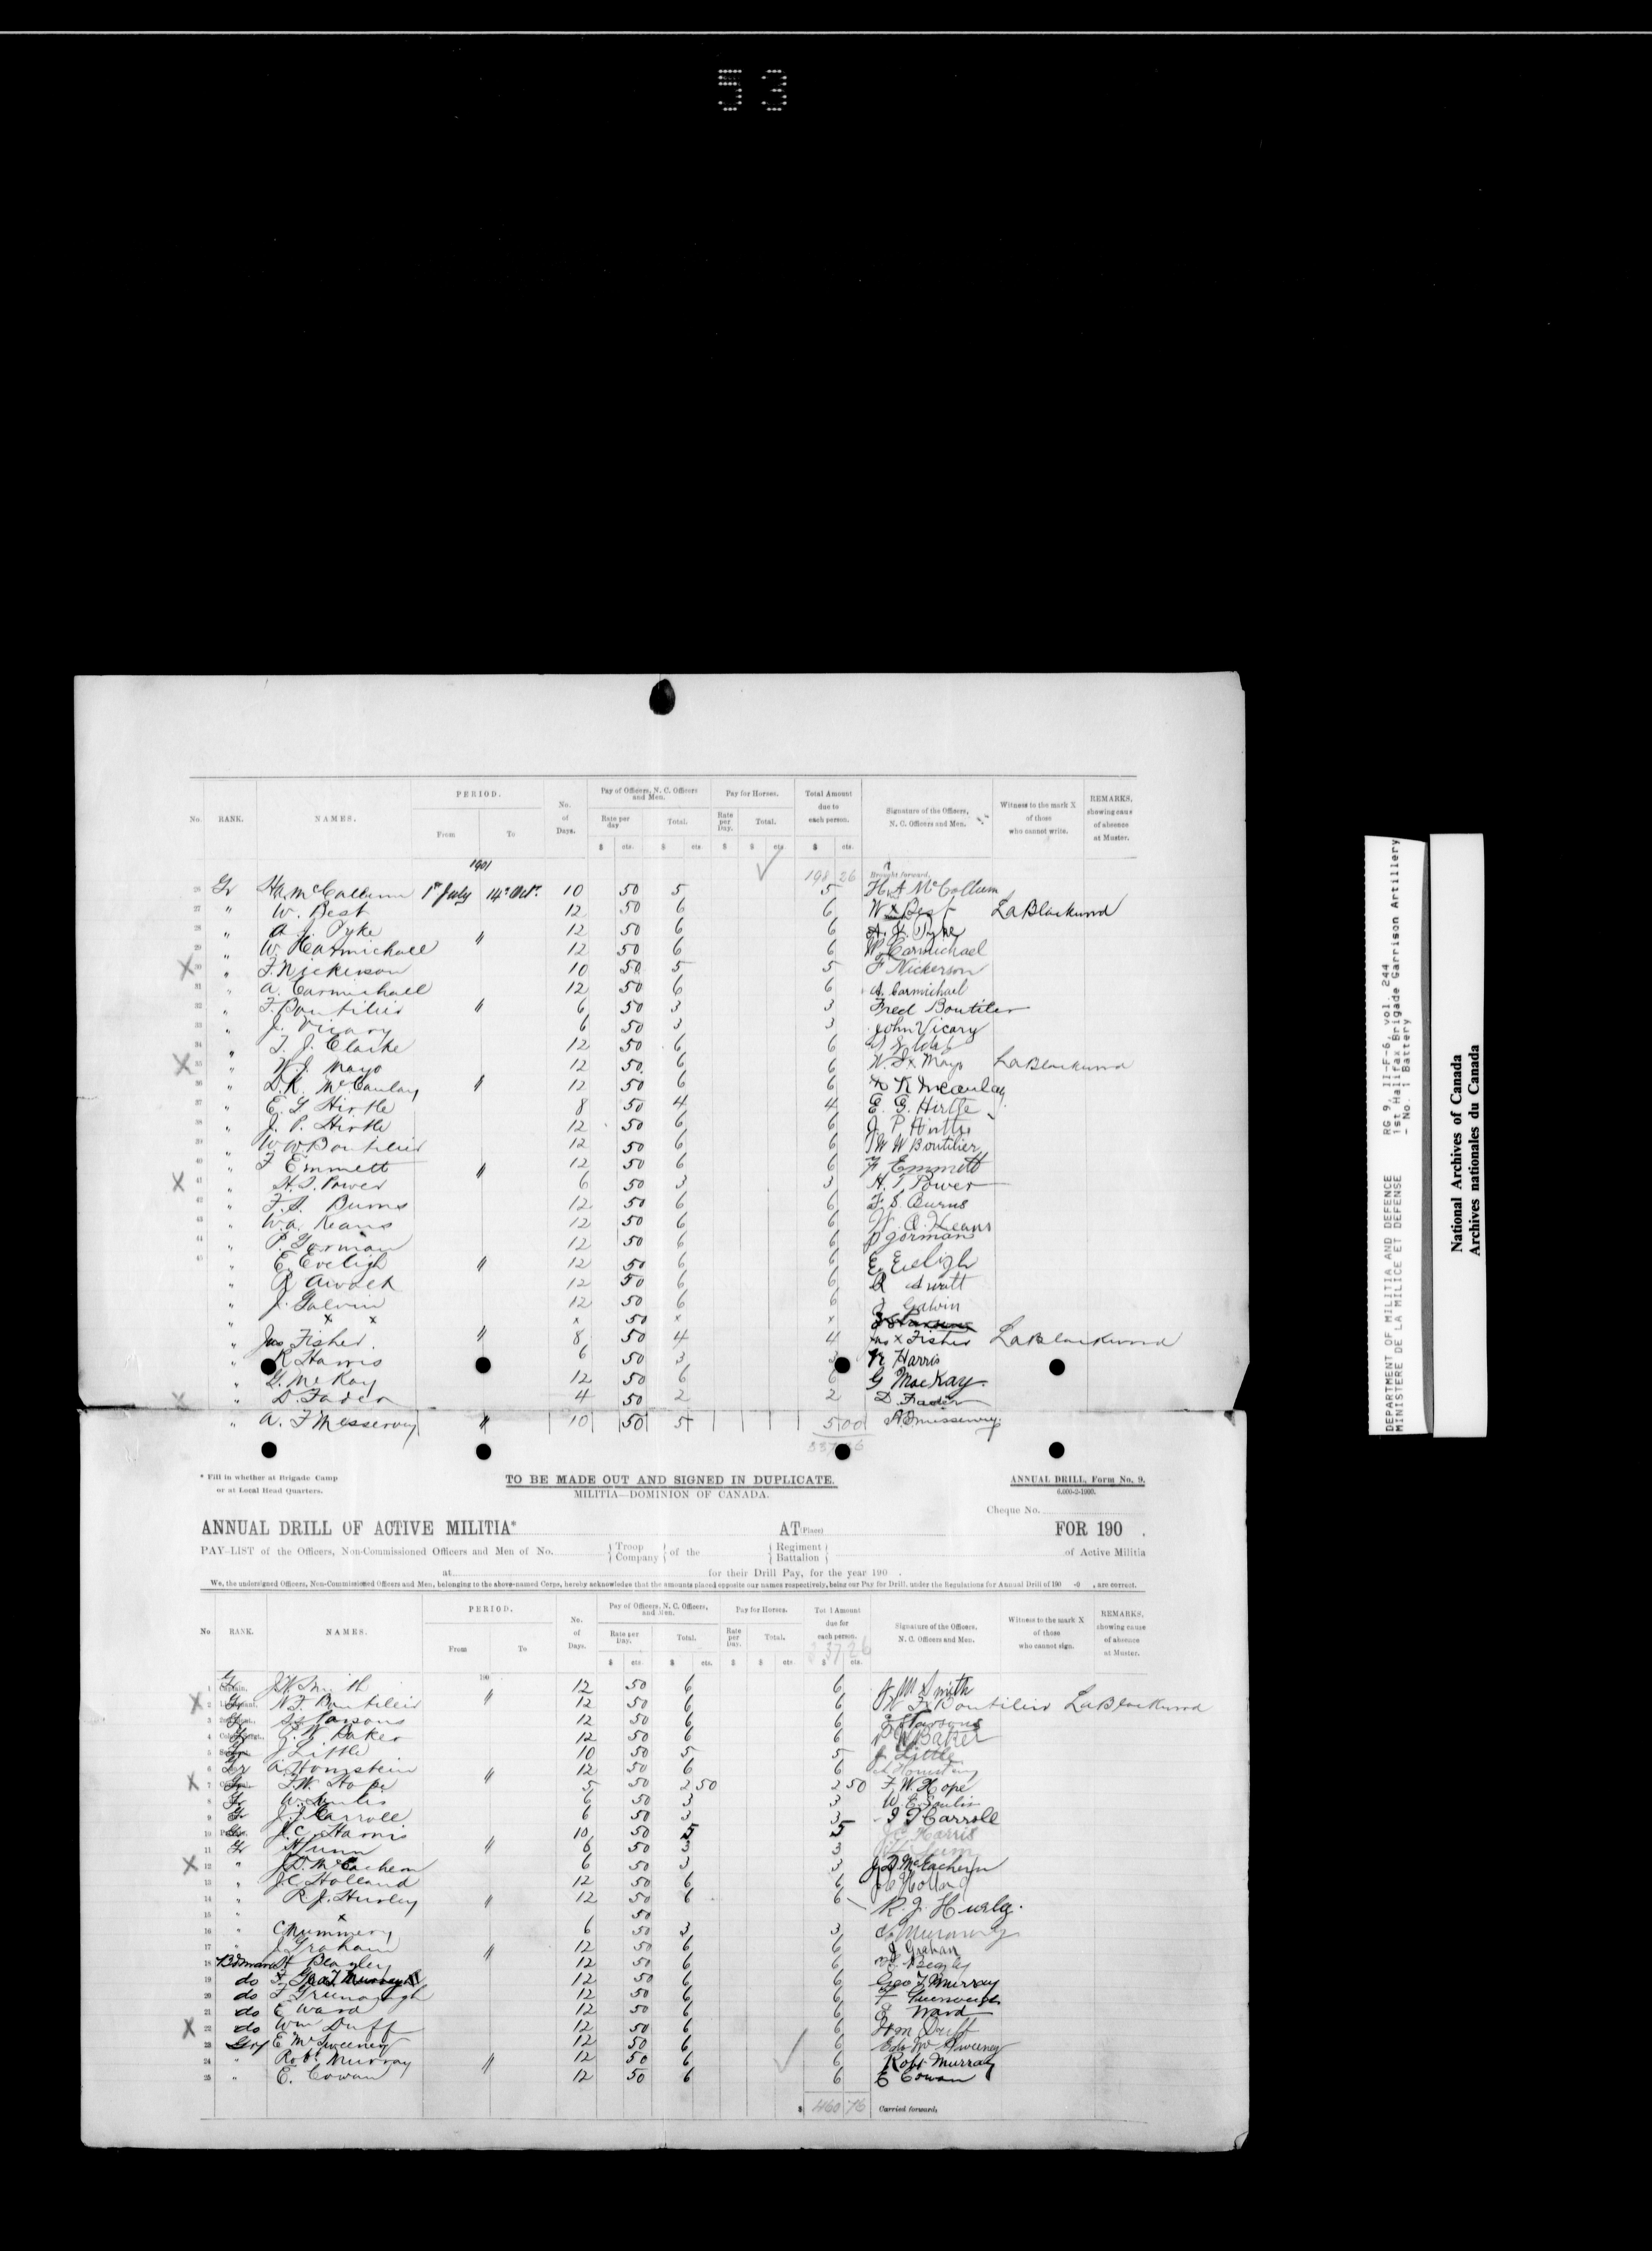 53
No. RANK. NAMES. PERIOD. From To No. of Days. Pay of Officers, N. C. Officers and Men. Rate per day Total. Pay for Horses. Rate per Day. Total. Total Amount due to each person. Signature of the Officers, N. C. Officers and Men. Witness to the mark X of those who cannot write. REMARKS, showing cause of absence at Muster.
$ cts. $ cts. $ $ cts. $ cts.
1901 198 26 Brought forward,
26 Gr H.A. McCallum 1st July 14th Oct. 10 50 5 5 H. A McCollum
27 " W. Best 12 50 6 6 W x Best La Blackwood
28 " A J. Pyke 12 50 6 6 A. J. Pyke
29 " W. Carmichael " 12 50 6 6 W Carmichael
X 30 " F. Nickerson 10 50 5 5 F Nickerson
31 " A. Carmichael 12 50 6 6 A. Carmichael
32 " F. Boutilier " 6 50 3 3 Fred Boutilier
33 " J. Vicary 6 50 3 3 John Vicary
34 " T. J. Clarke 12 50 6 6
X 35 " W. J. Mayo 12 50 6 6 W. J x Mayo La Blackwood
36 " D. K. McCaulay " 12 50 6 6 D K Mcaulay
37 " E. G Hirtle 8 50 4 4 E. G. Hirtle
38 " J. P. Hirtle 12 50 6 6 J. P Hirtle
39 " W. W Boutilier 12 50 6 6 W W Boutilier
40 " F Emmett " 12 50 6 6 F Emmett
X 41 " H. T. Power 6 50 3 3 H. T. Power
42 " F. S. Burns 12 50 6 6 F. S Burns
43 " W. A. Keans 12 50 6 6 W. A. Keans
44 " P. Gorman 12 50 6 6 P Gorman
45 " E. Eveligh " 12 50 6 6 E. Eveligh
" R Awalt 12 50 6 6 R Awalt
" J. Galvin 12 50 6 6 J Galvin
" x x x 50 x x
" Jas Fisher. " 8 50 4 4 Jas x Fisher La Blackwood
" R Harris 6 50 3 3 R Harris
" G. McKay 12 50 6 6 G MacKay.
X " D. Fader 4 50 2 2 D. Frader
" A. F Messervey " 10 50 5 5 00
337 26
* Fill in whether at Brigade Camp or at Local Head Quarters.
TO BE MADE OUT AND SIGNED IN DUPLICATE.
MILITIA—DOMINION OF CANADA.
ANNUAL DRILL, Form No. 9.
Cheque No.
ANNUAL DRILL OF ACTIVE MILITIA* AT (Place) FOR 190 .
PAY-LIST of the Officers, Non-Commissioned Officers and Men of No. Troop Company of the Regiment Battalion of Active Militia
at for their Drill Pay, for the year 190 .
We, the undersigned Officers, Non-Commissioned Officers and Men, belonging to the above-named Corps, hereby acknowledge that the amounts placed opposite our names respectively, being our Pay for Drill, under the Regulations for Annual Drill of 190 -0 , are correct.
No RANK. NAMES. PERIOD. From To No. of Days. Pay of Officers, N. C. Officers, and Men. Rate per Day. Total. Pay for Horses. Rate per Day. Total. Total Amount due for each person. Signature of the Officers, N. C. Officers and Men. Witness to the mark X of those who cannot sign. REMARKS, showing cause of absence at Muster.
337 26
$ cts. $ cts. $ $ cts. $ cts.
190
1 Gr J. W. Smith 12 50 6 6 J M Smith
X 2 Gr N. F. Boutilier " 12 50 6 6 N F x Boutilier La Blackwood
3 Gr S. S. Parsons 12 50 6 6 S Parsons
4 Gr P. W. Baker 12 50 6 6 P W Baker
5 Gr J Little 10 50 5 5 J. Little
6 Gr A. Hornstein " 12 50 6 6
X 7 Gr F. W. Hope 5 50 2 50 2 50 F. W. Hope
8 Gr 6 50 3 3
9 Gr J. J. Carroll 6 50 3 3 J J Carroll
10 Gr J. C. Harris 10 50 5 5 J C Harris
11 Gr " 6 50 3 3
X 12 " J. D. McEachern 6 50 3 3 J D McEachern
13 " J. C. Holland 12 50 6 6 J C Holland
14 " R. J. Hurley " 12 50 6 6 R. J. Hurley.
15 " x 50
16 " C Mummery 6 50 3 3 C Mummery
17 " J. Graham " 12 50 6 6 J Graham
18 Bdsman H Beazley 12 50 6 6 H. Beazley
19 do Geo T Murray 12 50 6 6 Geo T Murray
20 do F. Greenough 12 50 6 6 F Greenough
21 do E Ward 12 50 6 6 E Ward
X 22 do Wm Duff 12 50 6 6 Wm Duff
23 Gr E McSweeney 12 50 6 6 Ed McSweeney
24 " Robt Murray " 12 50 6 6 Robt Murray
25 " E. Cowan 12 50 6 6 E Cowan
$ 460 76 Carried forward,
DEPARTMENT OF MILITIA AND DEFENCE RG 9, II-F-6, vol. 244
MINISTERE DE LA MILICE ET DEFENSE 1st Halifax Brigade Garrison Artillery
- No. 1 Battery
National Archives of Canada
Archives nationales du Canada